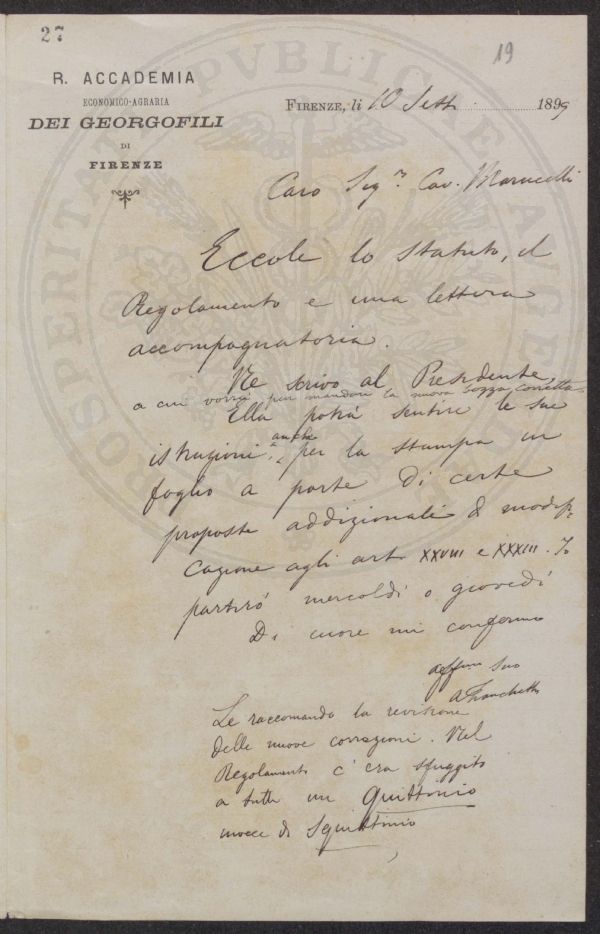 27
19
R. ACCADEMIA
ECONOMICO-AGRARIA
DEI GEORGOFILI
DI
FIRENZE
FIRENZE, li 10 Sett 1899
Caro Sig.r Cav. Marucelli
Eccole lo statuto, il
Regolamento e una lettera
accompagnatoria.
Ne scrivo al Presidente
a cui vorrà pur mandare la nuova bozza corretta
Ella potrà sentire le sue
istruzioni, anche per la stampa in
foglio a parte di certe
proposte addizionali e modifi-
cazione agli art. XXVIII e XXXIII. Io
partirò mercoldì o giovedì
Di cuore mi confermo
affmo suo
A Franchetti
Le raccomando la revisione
delle nuove correzioni. Nel
Regolamento c'era sfuggito
a tutti un Quittinio
invece di Squittinio
PROSPERITATI PVBLICAE AVGENDAE